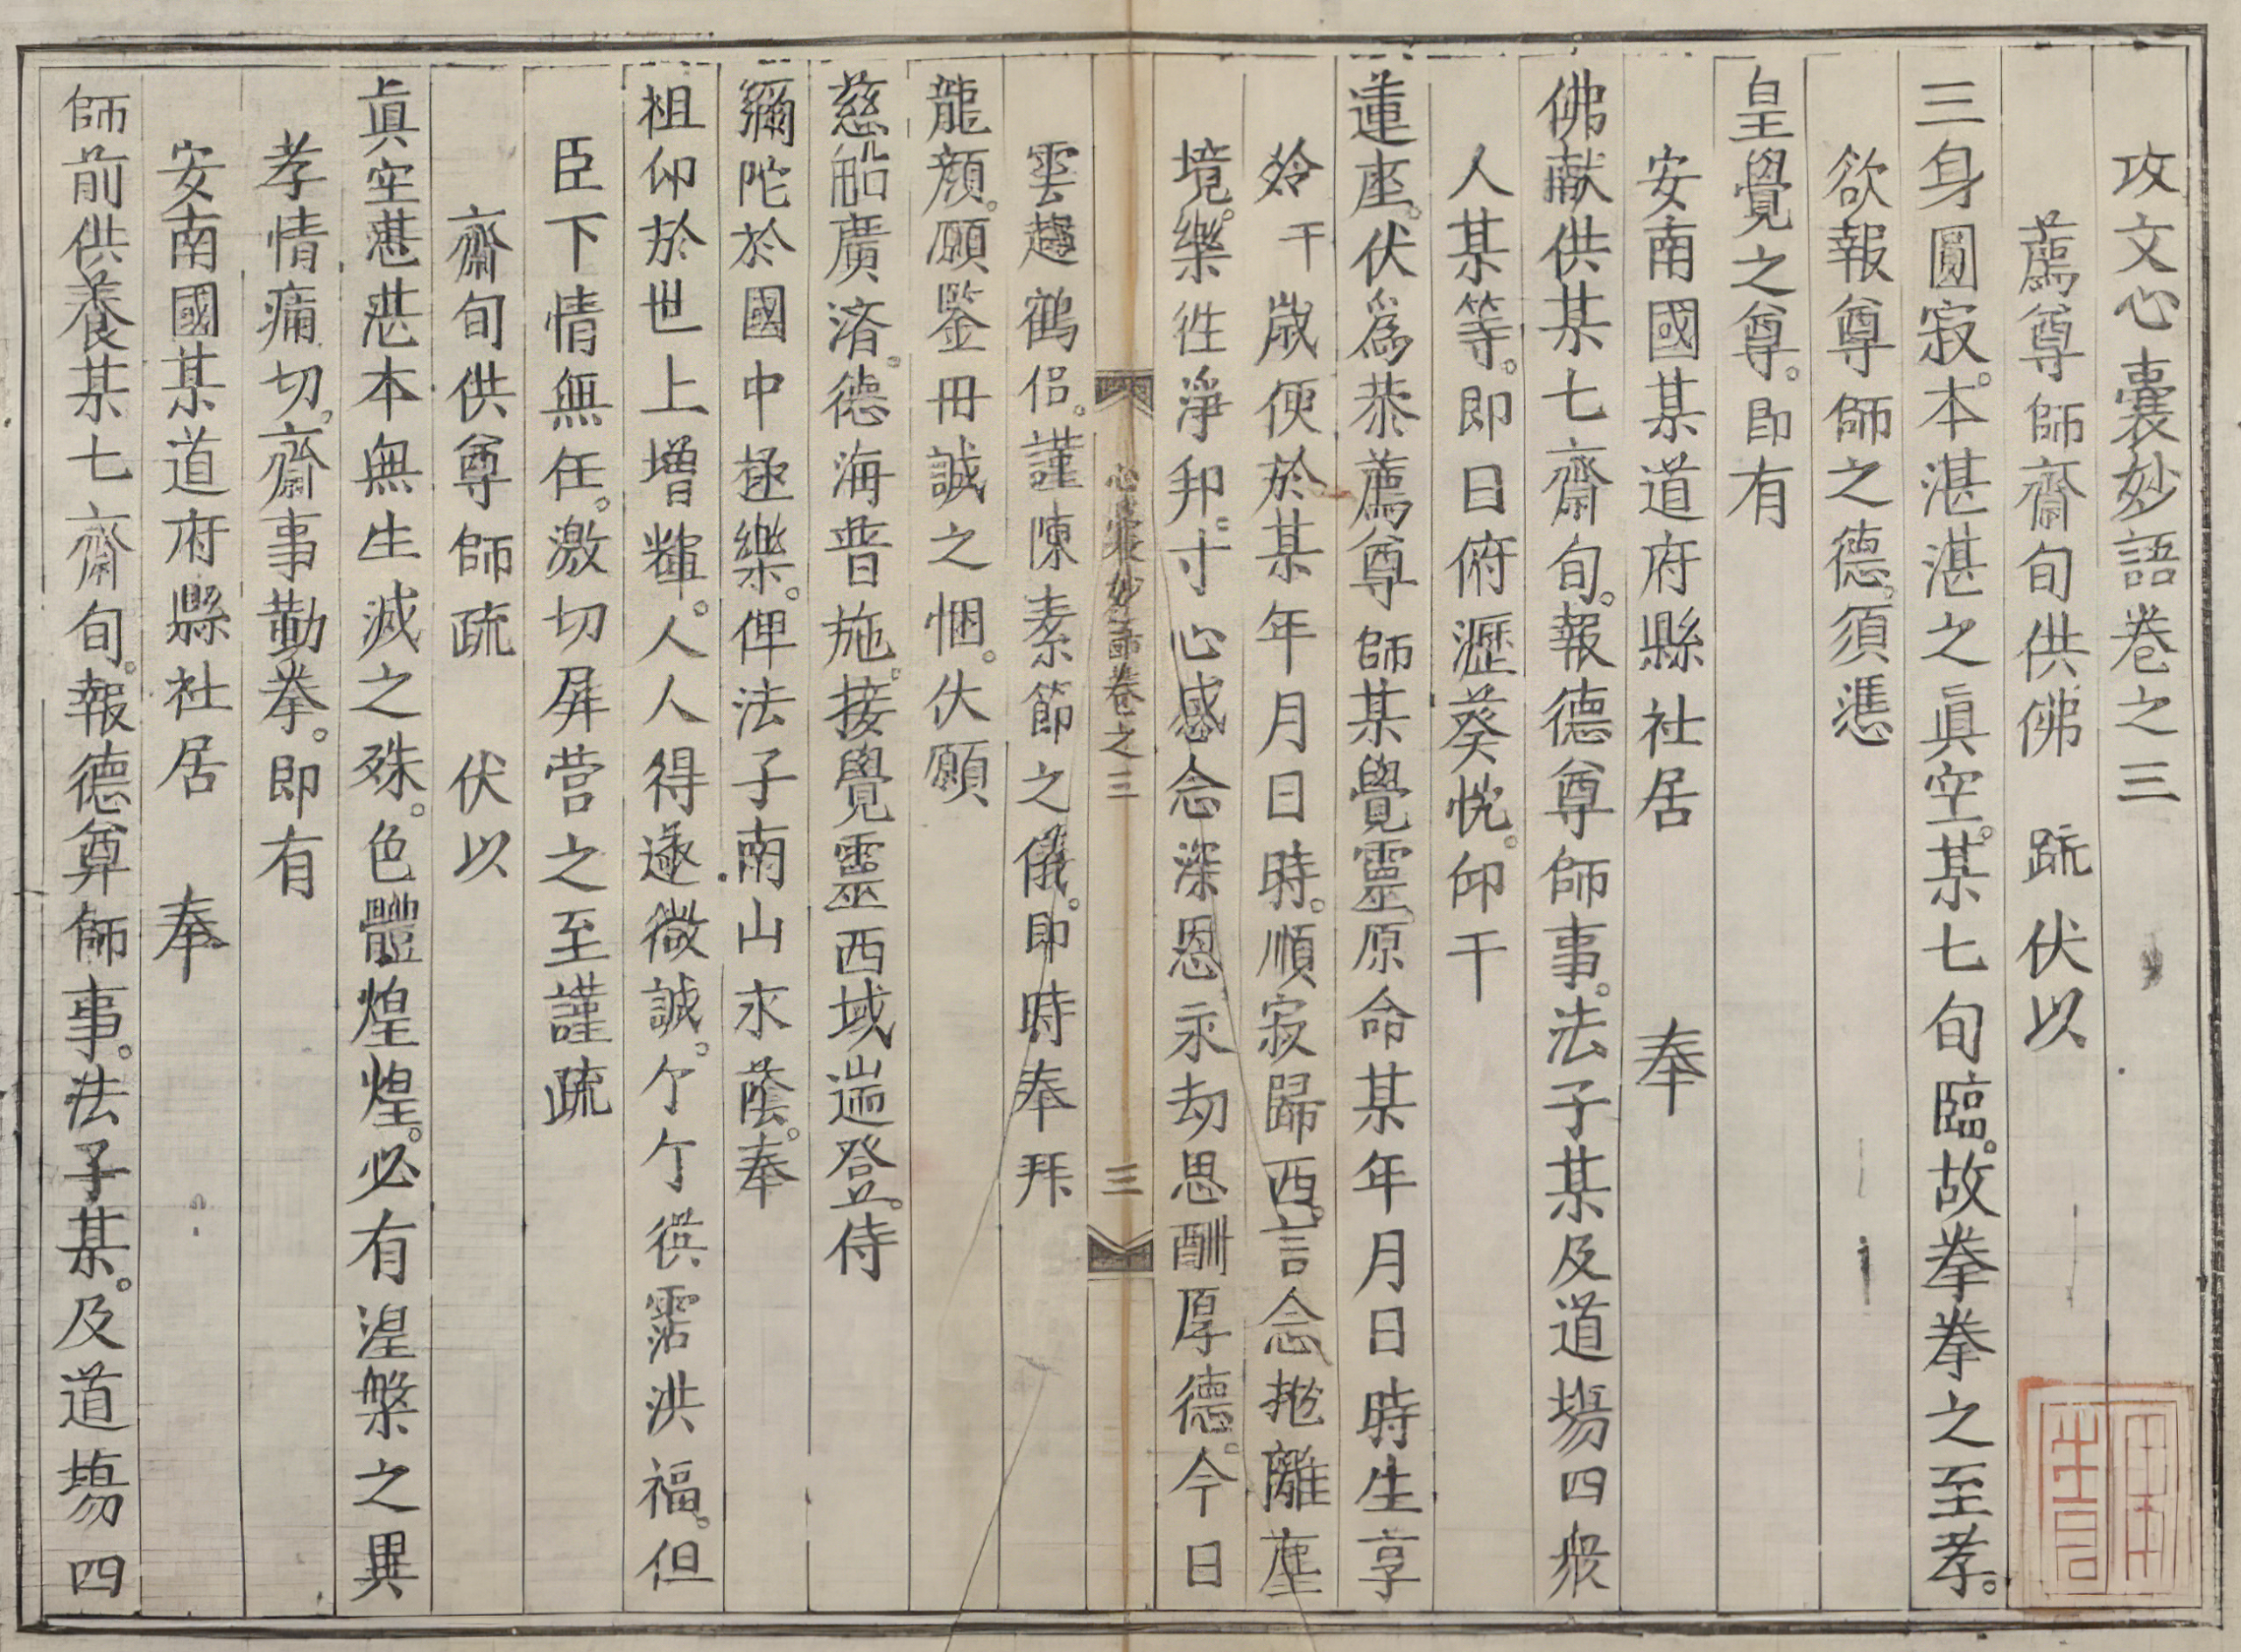 攻文心囊妙語卷之三
薦尊師齋旬供佛 疏 伏以
三身圓寂。本湛湛之眞空。某七旬臨。故拳拳之至孝。
欲報尊師之德。須憑
皇覺之尊。即有
安南國某道府縣社居 奉
佛獻供某七齋旬。報德尊師事。法子某及道塲四衆
人某等。即日俯瀝葵忱。仰干
蓮座。伏爲恭薦尊師某覺靈。原命某年月日時生享
干歲便於某年月日時。順寂歸西。言念抛離塵
境。樂徃淨邦。寸心感念深恩。永刼思酬厚德。今日
心囊妙語卷之三 三
雲趨鶴侣。謹陳素節之儀。即時奉拜
龍顔。願鑒冊誠之悃。伏願
慈船廣済。德海普施。接覺靈西域遄登。侍
彌陀於國中極樂。俾法子南山永蔭。奉
祖仰於世上增輝。人人得遂微誠。个个供霑洪福。但
臣下情無任。激切屏营之至謹疏
齋旬供尊師疏 伏以
眞空湛湛本無生滅之殊。色體煌煌。必有涅槃之異
孝情痛切。齋事勤拳。即有
安南國某道府縣社居 奉
師前供養某七齋旬。報德尊師事。法子某。及道塲四